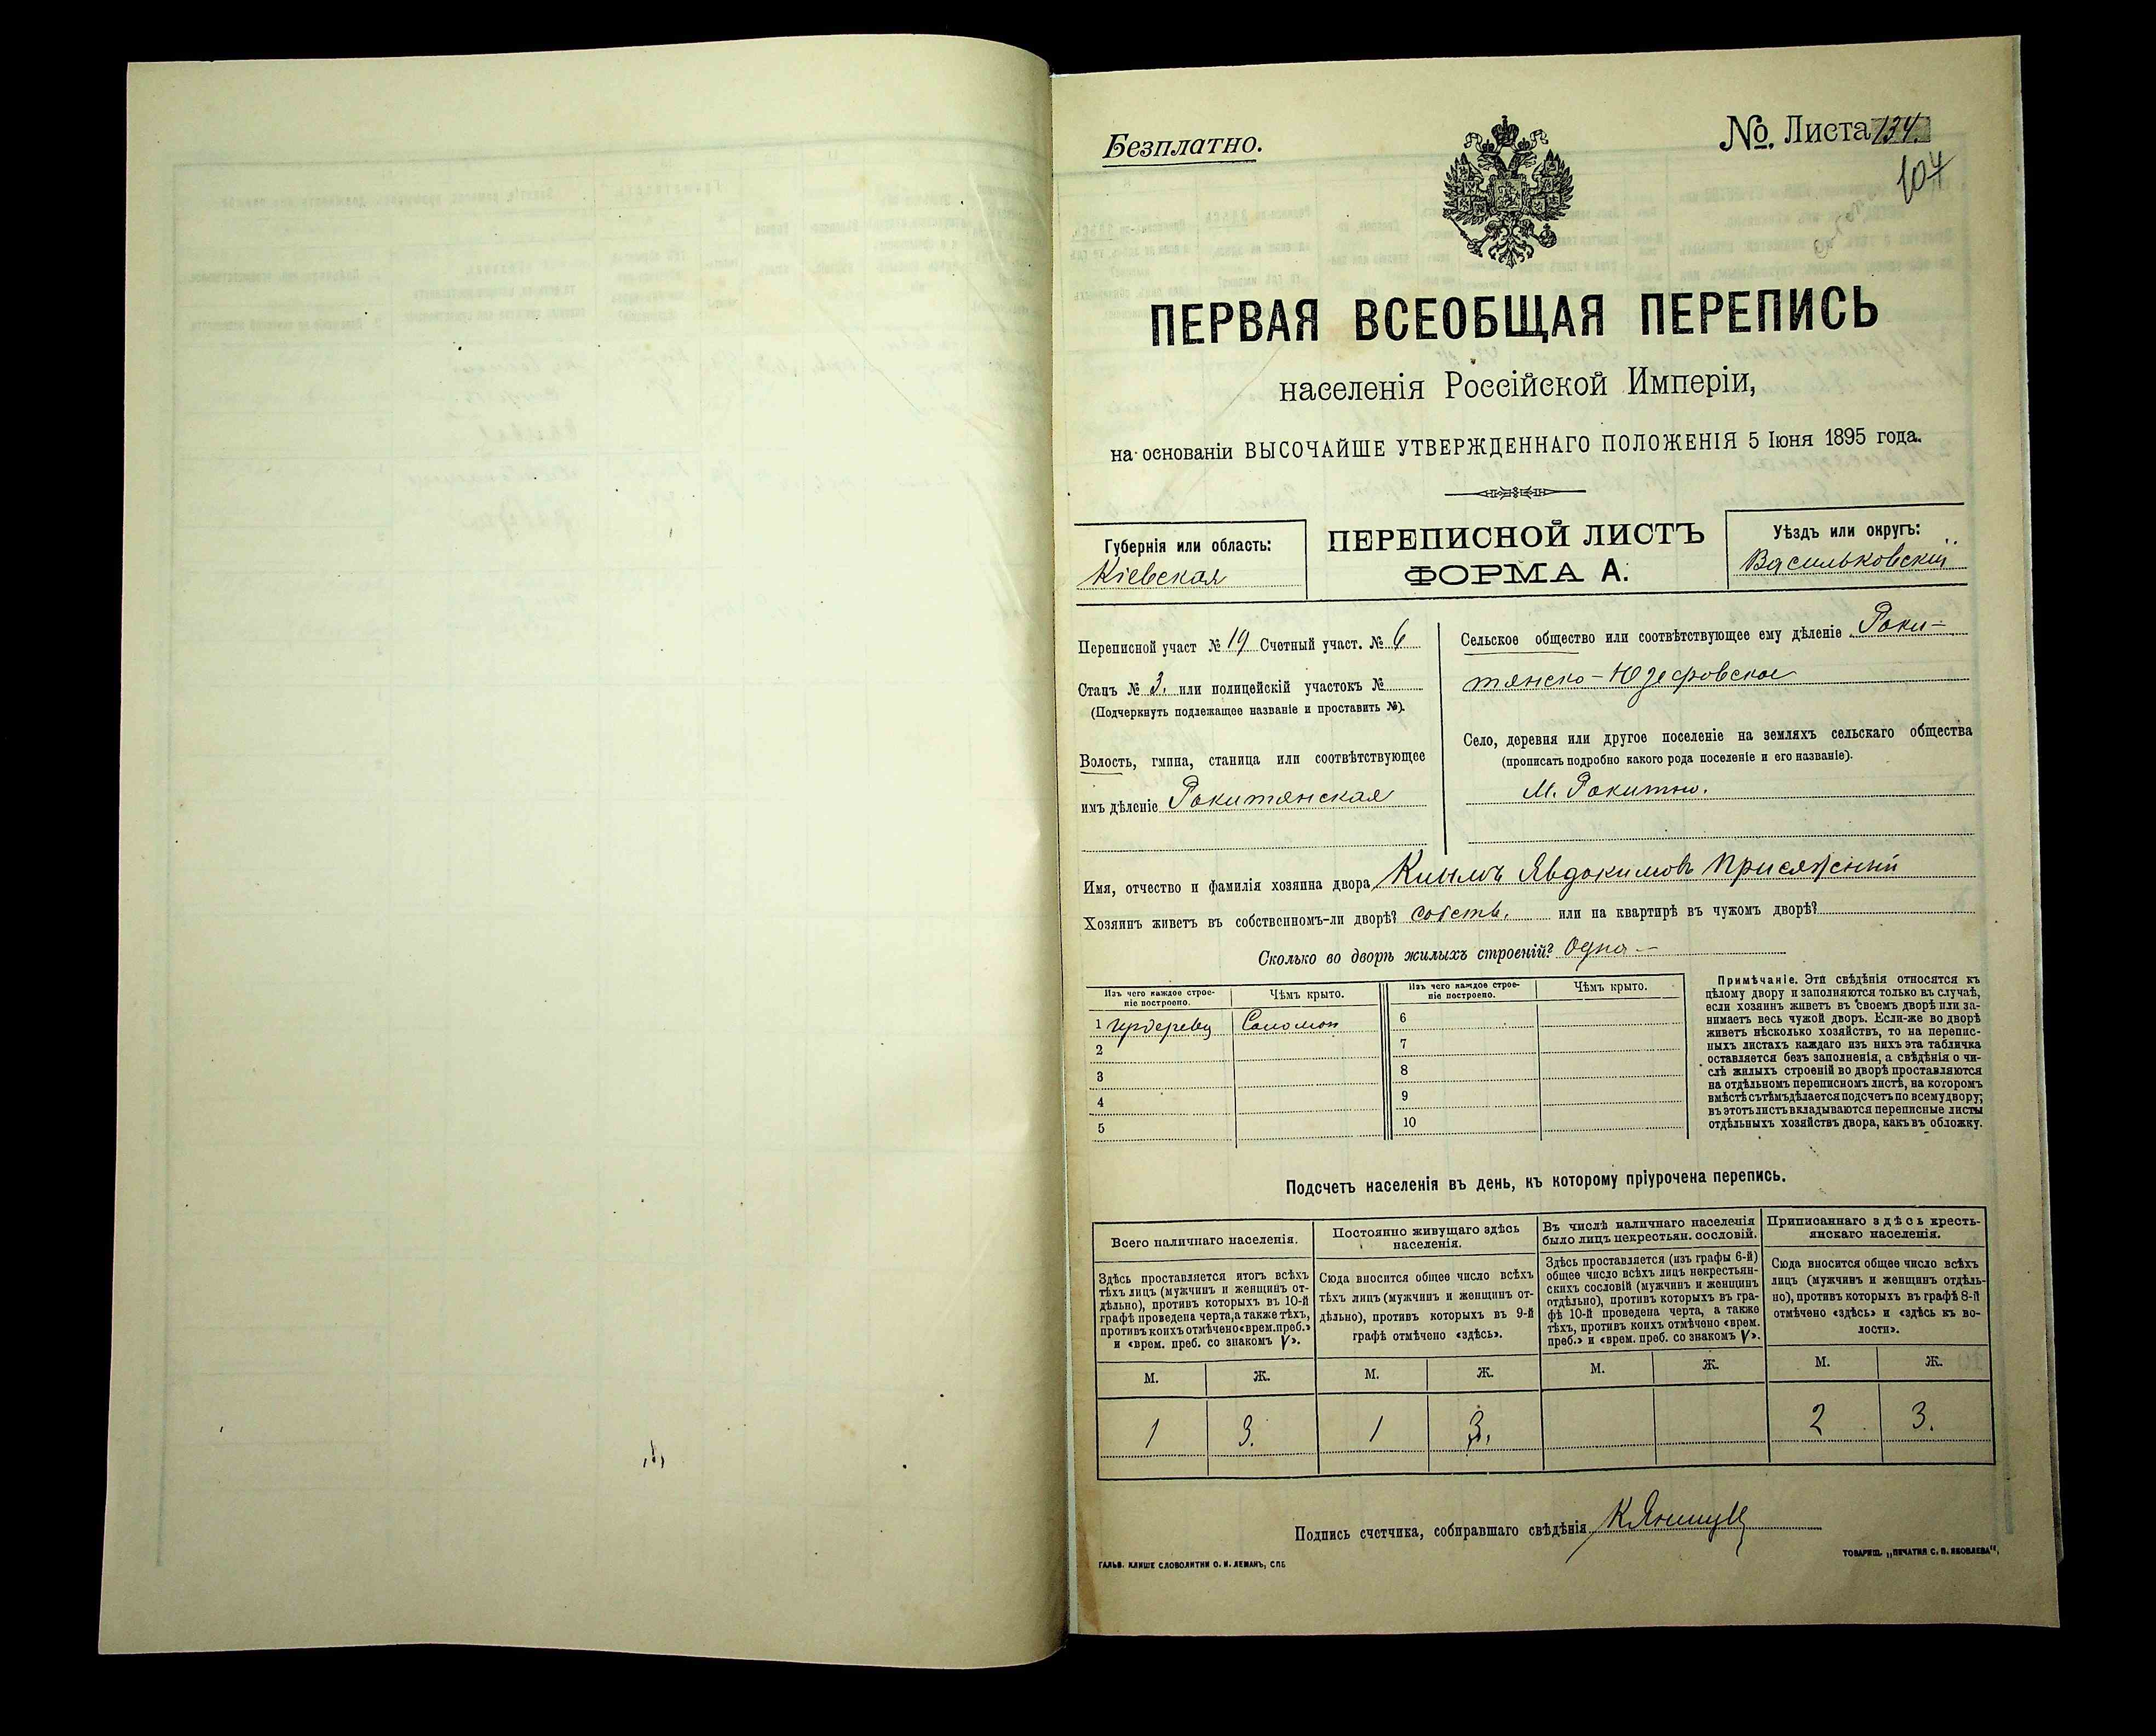 Безплатно.
№. Листа 134.
104
ПЕРВАЯ ВСЕОБЩАЯ ПЕРЕПИСЬ
населенія Россійской Имперіи,
на основаніи ВЫСОЧАЙШЕ УТВЕРЖДЕННАГО ПОЛОЖЕНІЯ 5 Іюня 1895 года.
Губернія или область:
Кіевская
ПЕРЕПИСНОЙ ЛИСТЪ
ФОРМА А.
Уѣздъ или округъ:
Васильковскій
Переписной участ № 19 Счетный участ. № 6
Станъ № 3. или полицейскій участокъ №
(Подчеркнуть подлежащее названіе и проставить №).
Волость, гмина, станица или соотвѣтствующее
имъ дѣленіе Рокитянская
Сельское общество или соотвѣтствующее ему дѣленіе Роки-
тянско-Юзефовское
Село, деревня или другое поселеніе на земляхъ сельскаго общества
(прописать подробно какого рода поселеніе и его названіе).
М. Рокитно.
Имя, отчество и фамилія хозяина двора Явдокимовъ Присяжный
Хозяинъ живетъ въ собственномъ-ли дворѣ? собств. или на квартирѣ въ чужомъ дворѣ?
Сколько во дворѣ жилыхъ строеній? Одна —
Изъ чего каждое строе-
ніе построено.
Чѣмъ крыто.
Изъ чего каждое строе-
ніе построено.
Чѣмъ крыто.
1 Соломой 6
2 7
3 8
4 9
5 10
Примѣчаніе. Эти свѣдѣнія относятся къ
цѣлому двору и заполняются только въ случаѣ,
если хозяинъ живетъ въ своемъ дворѣ или за-
нимаетъ весь чужой дворъ. Если-же во дворѣ
живетъ нѣсколько хозяйствъ, то на перепис-
ныхъ листахъ каждаго изъ нихъ эта табличка
оставляется безъ заполненія, а свѣдѣнія о чи-
слѣ жилыхъ строеній во дворѣ проставляются
на отдѣльномъ переписномъ листѣ, на которомъ
вмѣстѣ съ тѣмъ дѣлается подсчетъ по всему двору;
въ этотъ листъ вкладываются переписные листы
отдѣльныхъ хозяйствъ двора, какъ въ обложку.
Подсчетъ населенія въ день, къ которому пріурочена перепись.
Всего наличнаго населенія.
Здѣсь проставляется итогъ всѣхъ
тѣхъ лицъ (мужчинъ и женщинъ от-
дѣльно), противъ которыхъ въ 10-й
графѣ проведена черта, а также тѣхъ,
противъ коихъ отмѣчено «врем. преб.»
и «врем. преб. со знакомъ V».
Постоянно живущаго здѣсь
населенія.
Сюда вносится общее число всѣхъ
тѣхъ лицъ (мужчинъ и женщинъ от-
дѣльно), противъ которыхъ въ 9-й
графѣ отмѣчено «здѣсь».
Въ числѣ наличнаго населенія
было лицъ некрестьян. сословій.
Здѣсь проставляется (изъ графы 6-й)
общее число всѣхъ лицъ некрестьян-
скихъ сословій (мужчинъ и женщинъ
отдѣльно), противъ которыхъ въ гра-
фѣ 10-й проведена черта, а также
тѣхъ, противъ коихъ отмѣчено «врем.
преб.» и «врем. преб. со знакомъ V».
Приписаннаго здѣсь кресть-
янскаго населенія.
Сюда вносится общее число всѣхъ
лицъ (мужчинъ и женщинъ отдѣль-
но), противъ которыхъ въ графѣ 8-й
отмѣчено «здѣсь» и «здѣсь къ во-
лости».
М. Ж. М. Ж. М. Ж. М. Ж.
1 3. 1 3. 2 3.
Подпись счетчика, собиравшаго свѣдѣнія
ГАЛЬВ. КЛИШЕ СЛОВОЛИТНИ О. И. ЛЕМАНЪ, СПБ
ТОВАРИЩ. „ПЕЧАТНЯ С. П. ЯКОВЛЕВА“,